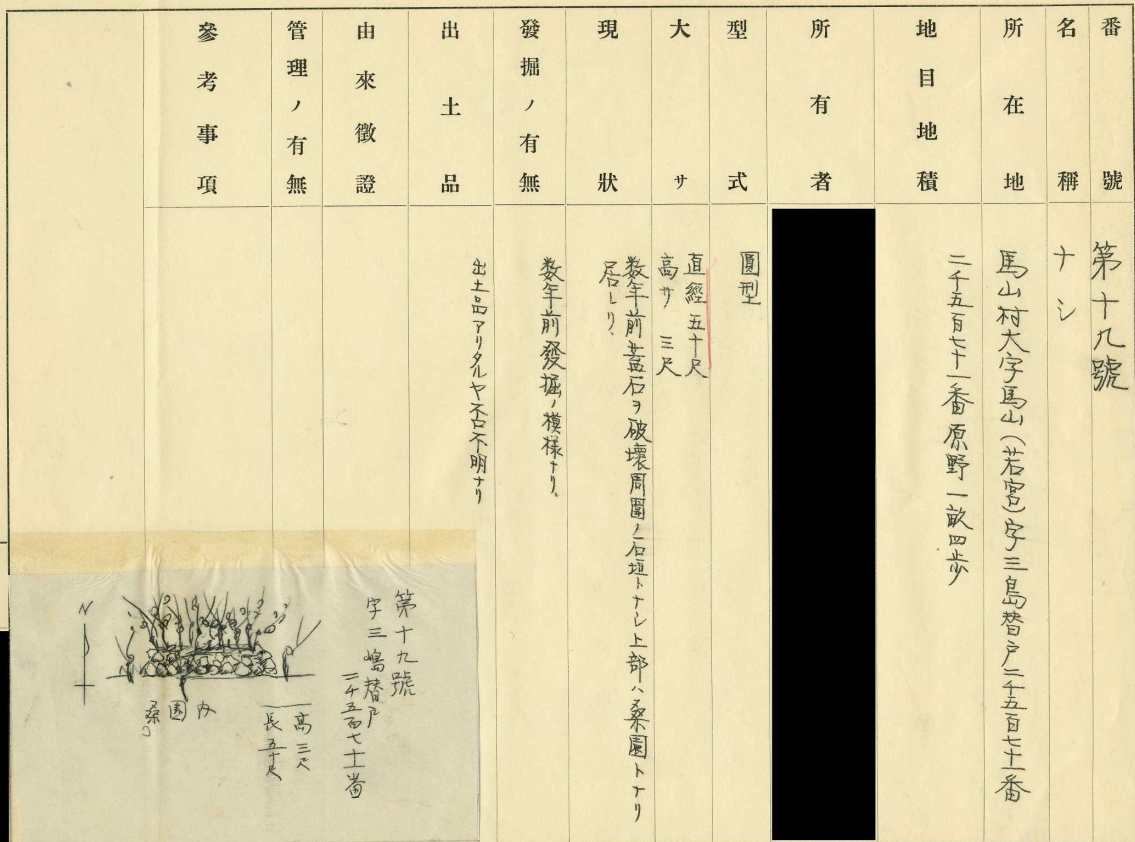 番號
第十九號
名稱
ナシ
所在地
馬山村大字馬山(若宮)字三島替戸二千五百七十一番
地目地積
二千五百七十一番原野一畝四歩
所有者
型式
圓型
大サ
直經五十尺
高サ三尺
現狀
数年前蓋石ヲ破壊周圍ノ石垣トナシ上部ハ桑園トナリ
居レリ、
發掘ノ有無
数年前發掘ノ模様ナリ、
出土品
出土品アリタルヤ否不明ナリ
由來徵證
管理ノ有無
參考事項
第十九號
字三嶋替戸
二千五百七十一番
高三尺
長五十尺
内園桑
N